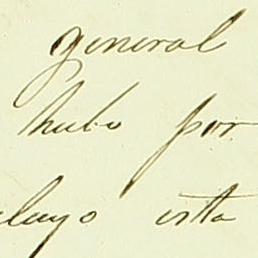 general
hubo por
cuyo esta